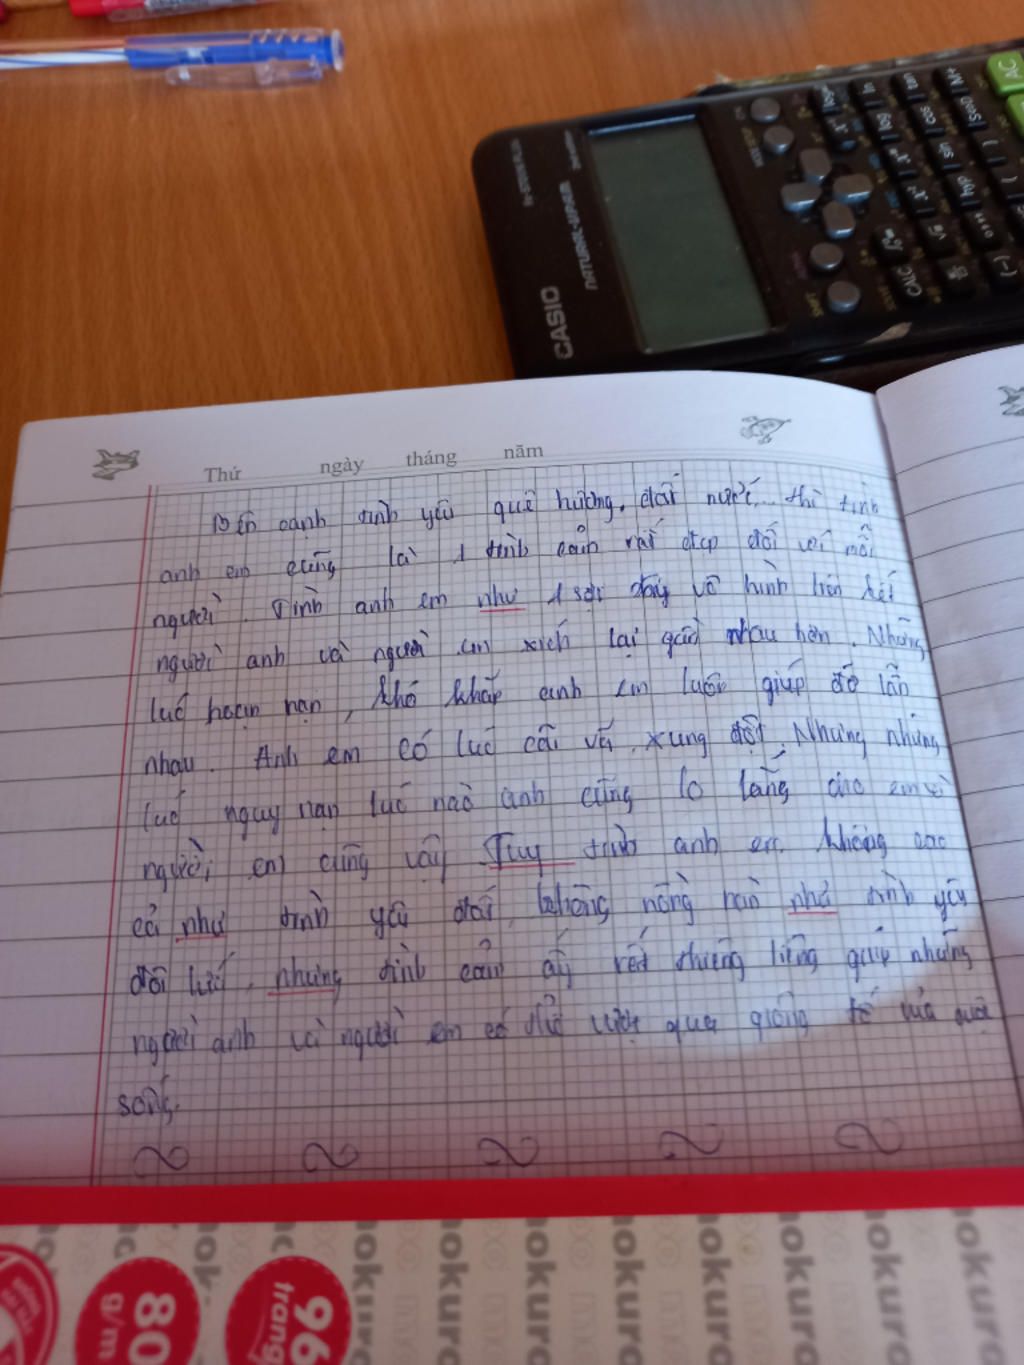 AC
M+
tan
ln
CALC
CASIO
Thứ ngày tháng năm
Bên cạnh tình yêu quê hương, đất nước... thì tình
anh em cũng là 1 tình cảm rất đẹp đối với mỗi
người. Tình anh em như 1 sợi dây vô hình liên kết
người anh và người em xích lại gần nhau hơn. Những
lúc hoạn nạn, khó khăn anh em luôn giúp đỡ lẫn
nhau. Anh em có lúc cãi vã, xung đột. Nhưng những
lúc nguy nan lúc nào anh cũng lo lắng cho em và
người em cũng vậy Tuy tình anh em không cao
cả như tình yêu đất, không nồng nàn như tình yêu
đôi lứa, nhưng tình cảm ấy rất thiêng liêng giúp những
người anh và người em có thể vượt qua giông tố của cuộc
sống.
80
g/m
96
trang